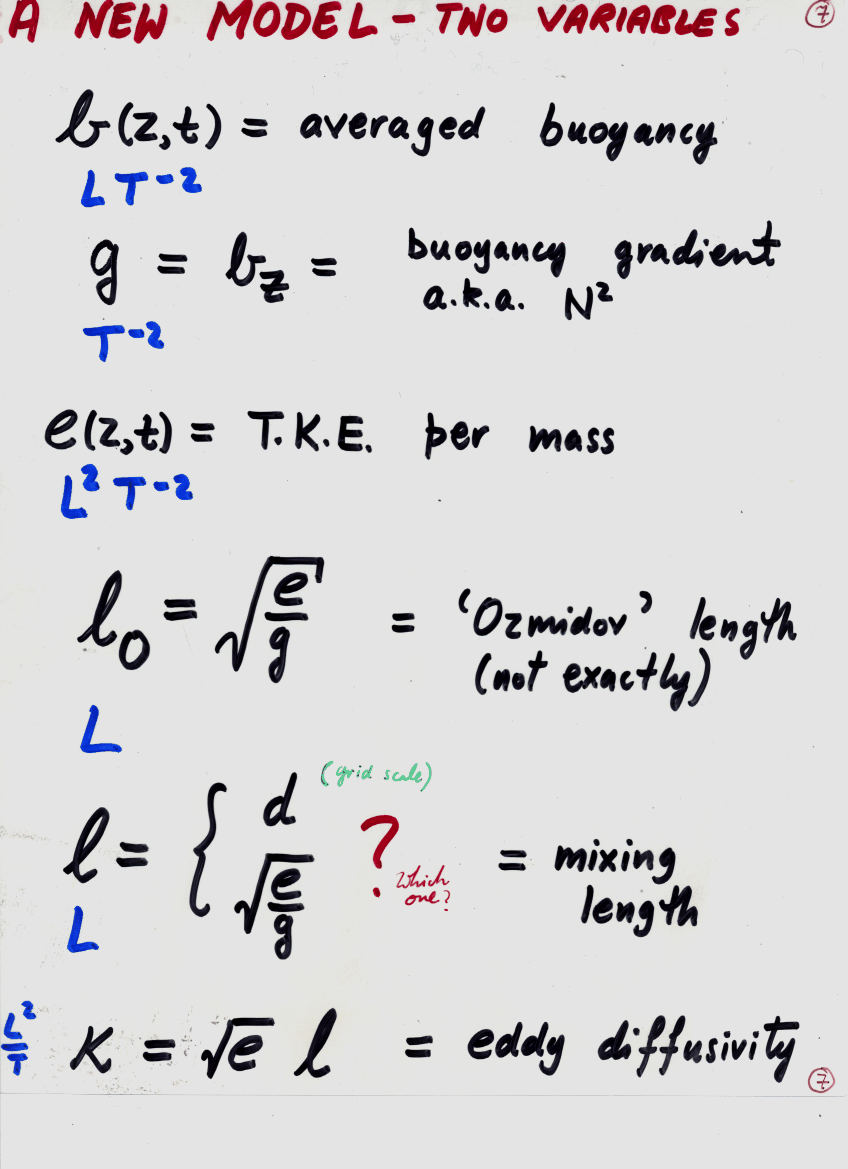 A NEW MODEL - TWO VARIABLES ⑦
b(z,t) = averaged buoyancy
L T⁻²
g = b_z = buoyancy gradient
a.k.a. N²
T⁻²
e(z,t) = T.K.E. per mass
L² T⁻²
l₀ = √(e/g) = 'Ozmidov' length
(not exactly)
L
l = { d (grid scale)
√(e/g) ? Which one? = mixing length
L
L²/T K = √e l = eddy diffusivity
⑦